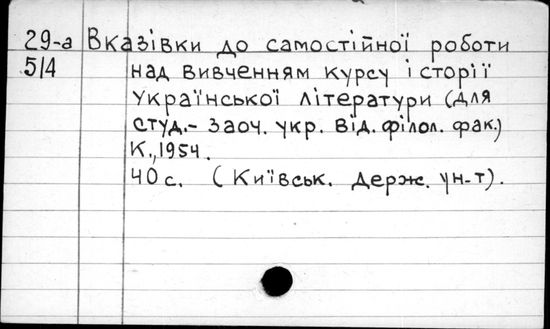 29-а Вказівки до самостійної роботи
5/4 над вивченням курсу історії
української літератури (для
студ.- заоч. укр. від. філол. фак.)
К., 1954.
40 с. (Київськ. держ. ун-т).